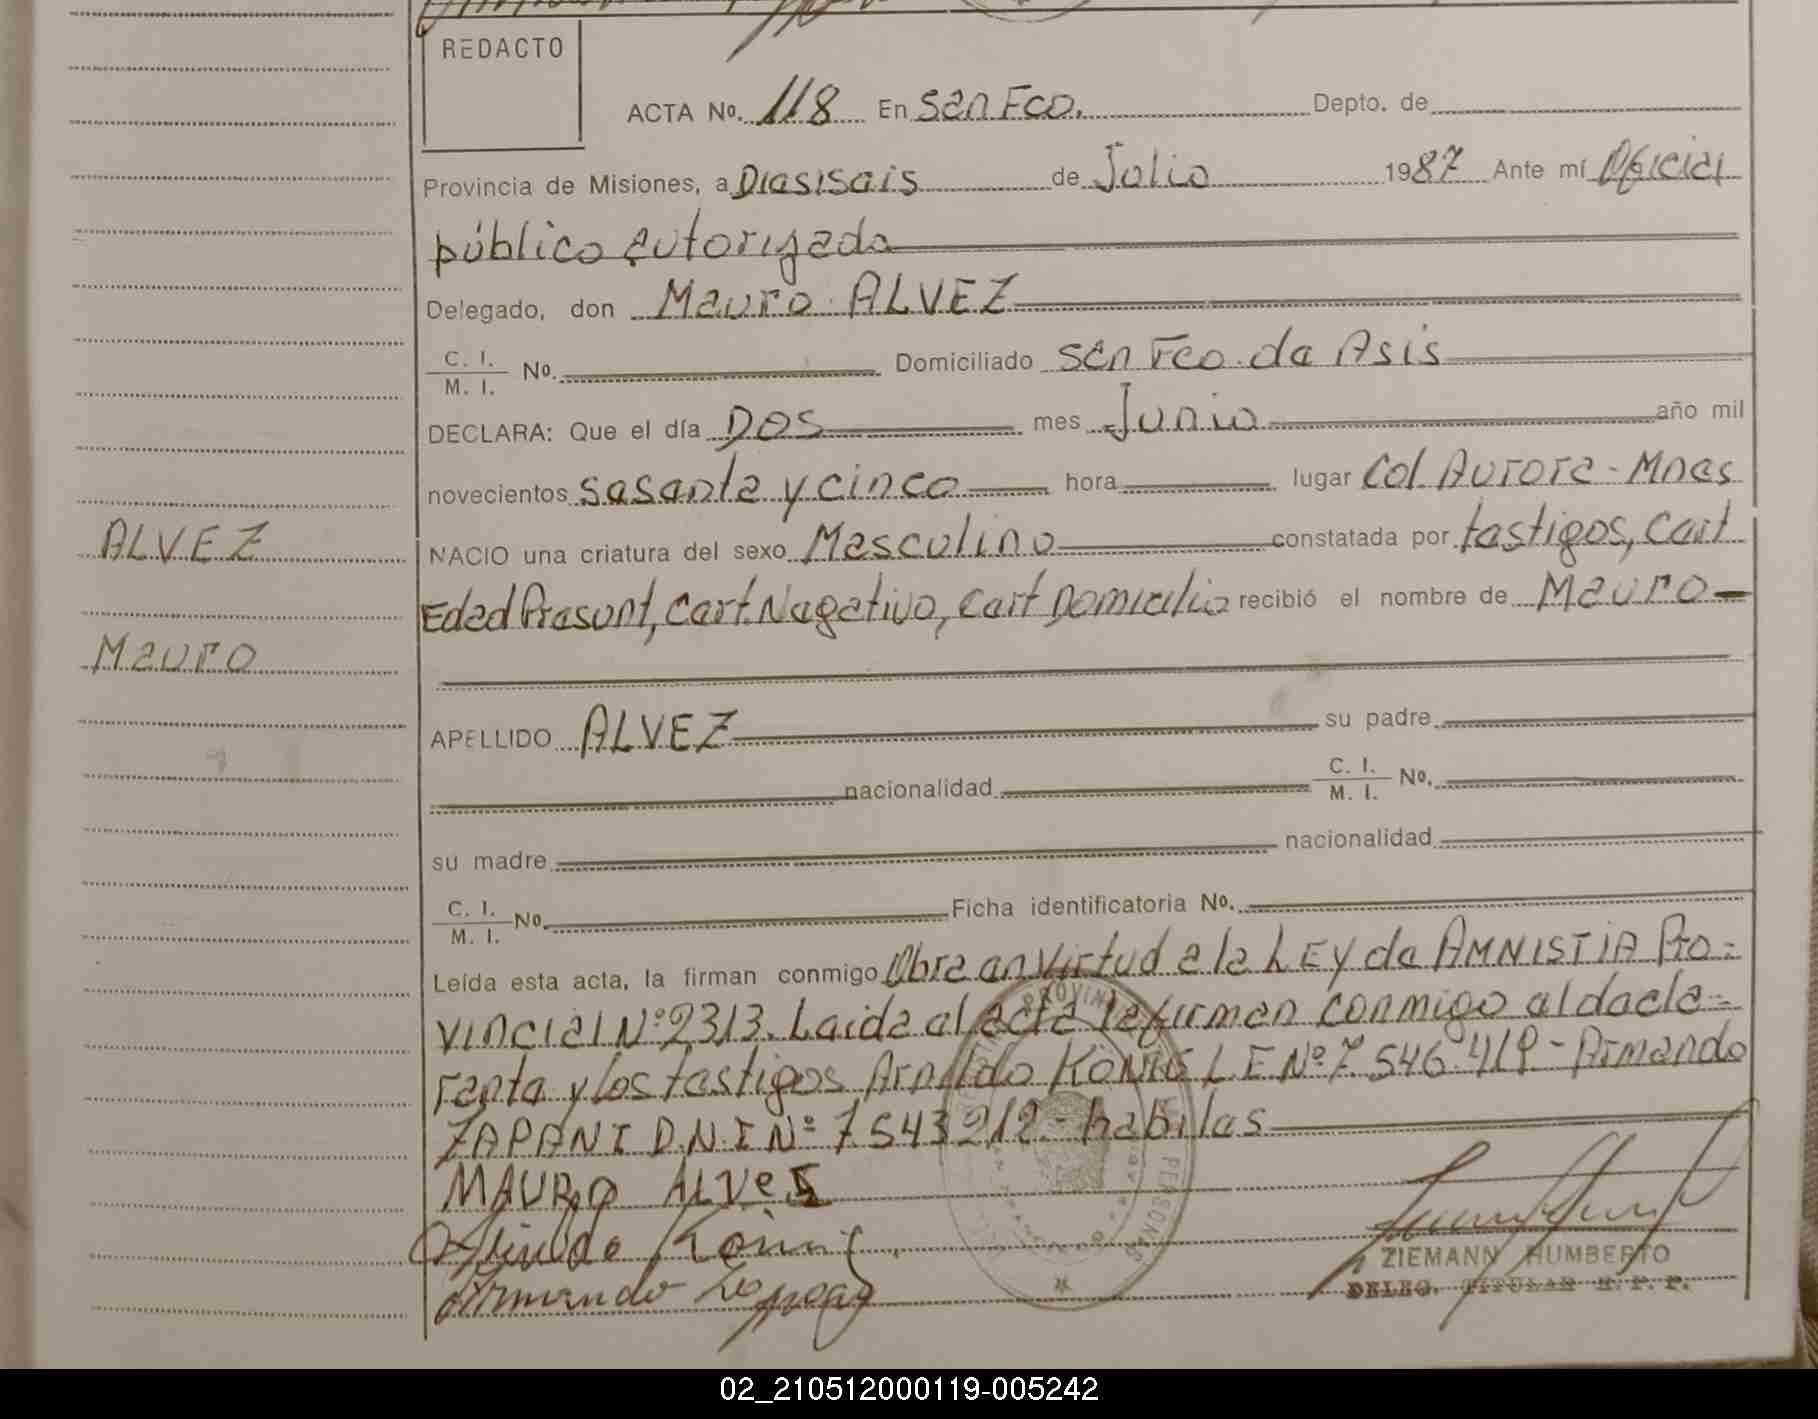 REDACTO
ACTA No. 118 En San Fco. Depto. de
Provincia de Misiones, a Diesiseis de Julio 1987 Ante mí Oficial
público autorizado
Delegado, don Mauro ALVEZ
C. I.
M. I. No. Domiciliado San Fco. de Asis
DECLARA: Que el día DOS mes Junio año mil
novecientos sesenta y cinco hora lugar Col. Aurora - Mnes
ALVEZ
NACIO una criatura del sexo Masculino constatada por testigos, Cert
Edad Presunt, Cert. Negativo, Cert Domicilio recibió el nombre de Mauro
Mauro
APELLIDO ALVEZ su padre
nacionalidad C. I.
M. I. No.
su madre nacionalidad
C. I.
M. I. No. Ficha identificatoria No.
Leída esta acta, la firman conmigo Obra en virtud a la LEY de AMNISTIA Pro=
vincial Nº 2313. Leida el acta la firman conmigo el decla=
rante y los testigos Arnildo KÖNIG L.E Nº 7.546.419 - Armando
ZAPANI D.N.I Nº 7543212 - habiles
MAURO ALVES
König
Armando
ZIEMANN HUMBERTO
DELEG. TITULAR R. P. P.
02_210512000119-005242